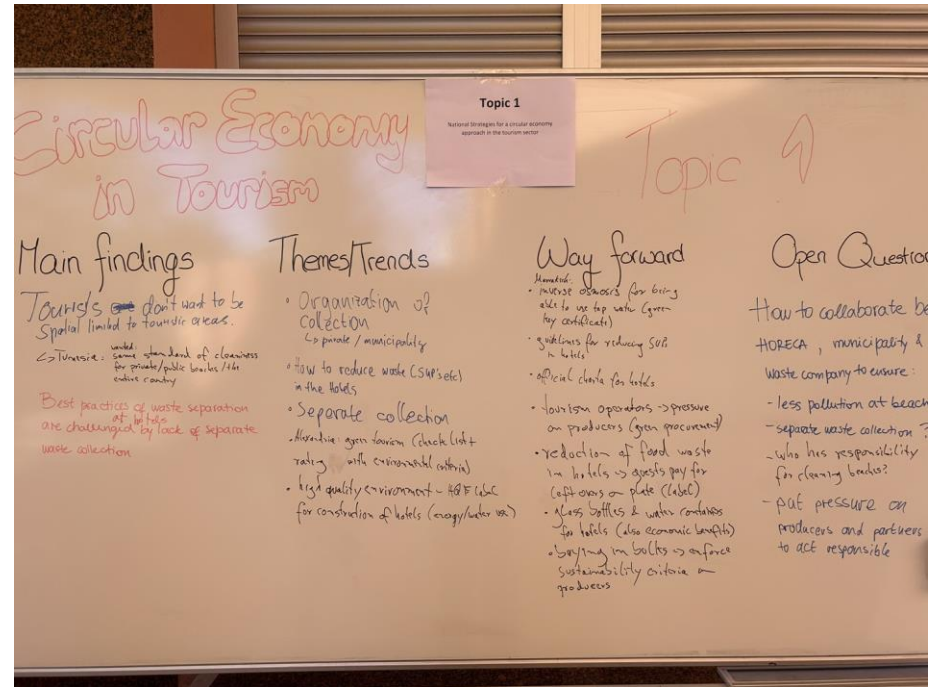 Circular Economy
in Tourism
Topic 1
National Strategies for a circular economy
approach in the tourism sector
Topic 1
Main findings
Tourists don't want to be
Spatial limited to touristic areas.
↳ Tunesia: wanted:
same standard of cleaniness
for private/public beaches/the
entire country
Best practices of waste separation
at hotels
are challenged by lack of separate
waste collection
Themes/Trends
• Organization of
collection
↳ private / municipality
• How to reduce waste (SUP's etc)
in the Hotels
• Separate collection
• Alexandria: green tourism (check list +
rating with environmental criteria)
• high quality environment - HQE label
for construction of hotels (energy/water use)
Way forward
Marrakech:
• inverse osmosis for being
able to use tap water (green
key certificate)
• guidelines for reducing SUP
in hotels
• official charta for hotels
• tourism operators → pressure
on producers (green procurement)
• reduction of food waste
in hotels → guests pay for
leftovers on plate (label)
• glass bottles & water containers
for hotels (also economic benefits)
• buying in bulks → enforce
sustainability criteria on
producers
Open Question
How to collaborate be
HORECA, municipality &
waste company to ensure:
- less pollution at beach
- separate waste collection ?
- who has responsibility
for cleaning beaches?
- put pressure on
producers and partners
to act responsible